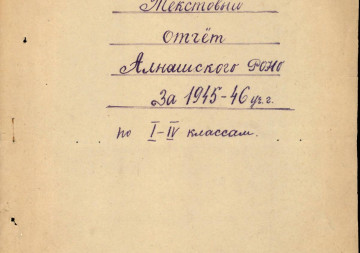 Текстовый
отчёт
Алнашского РОНО
За 1945-46 уч.г.
по I-IV классам.